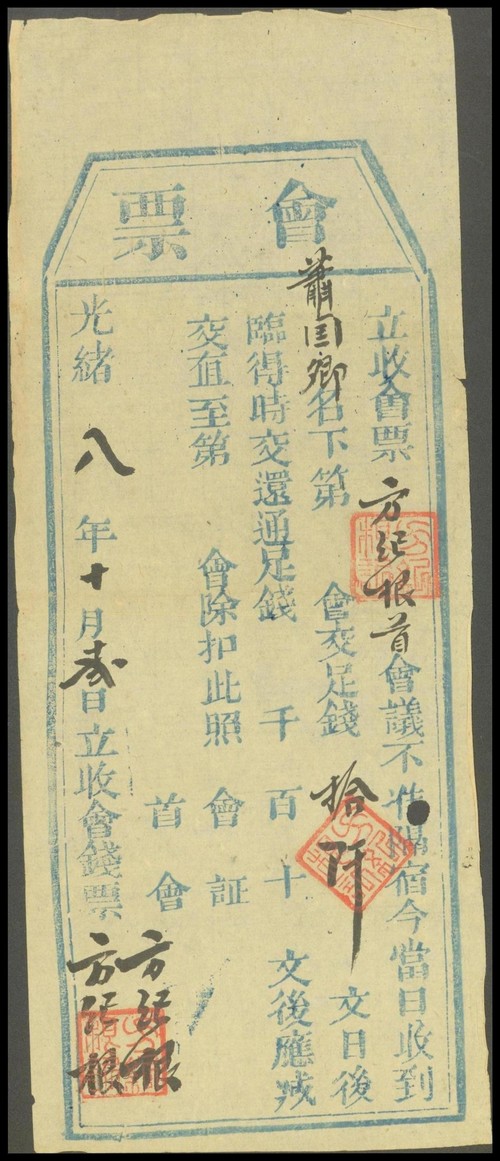 會票
立收會票方紀根首會議不准隔宿今當日收到
蕭国卿名下第會交足錢拾阡文日後
臨得時交還通足錢千百十文後應戒
交值至第會除扣此照會証
首會方紀根
光緒八年十月弍日立收會錢票方紀根